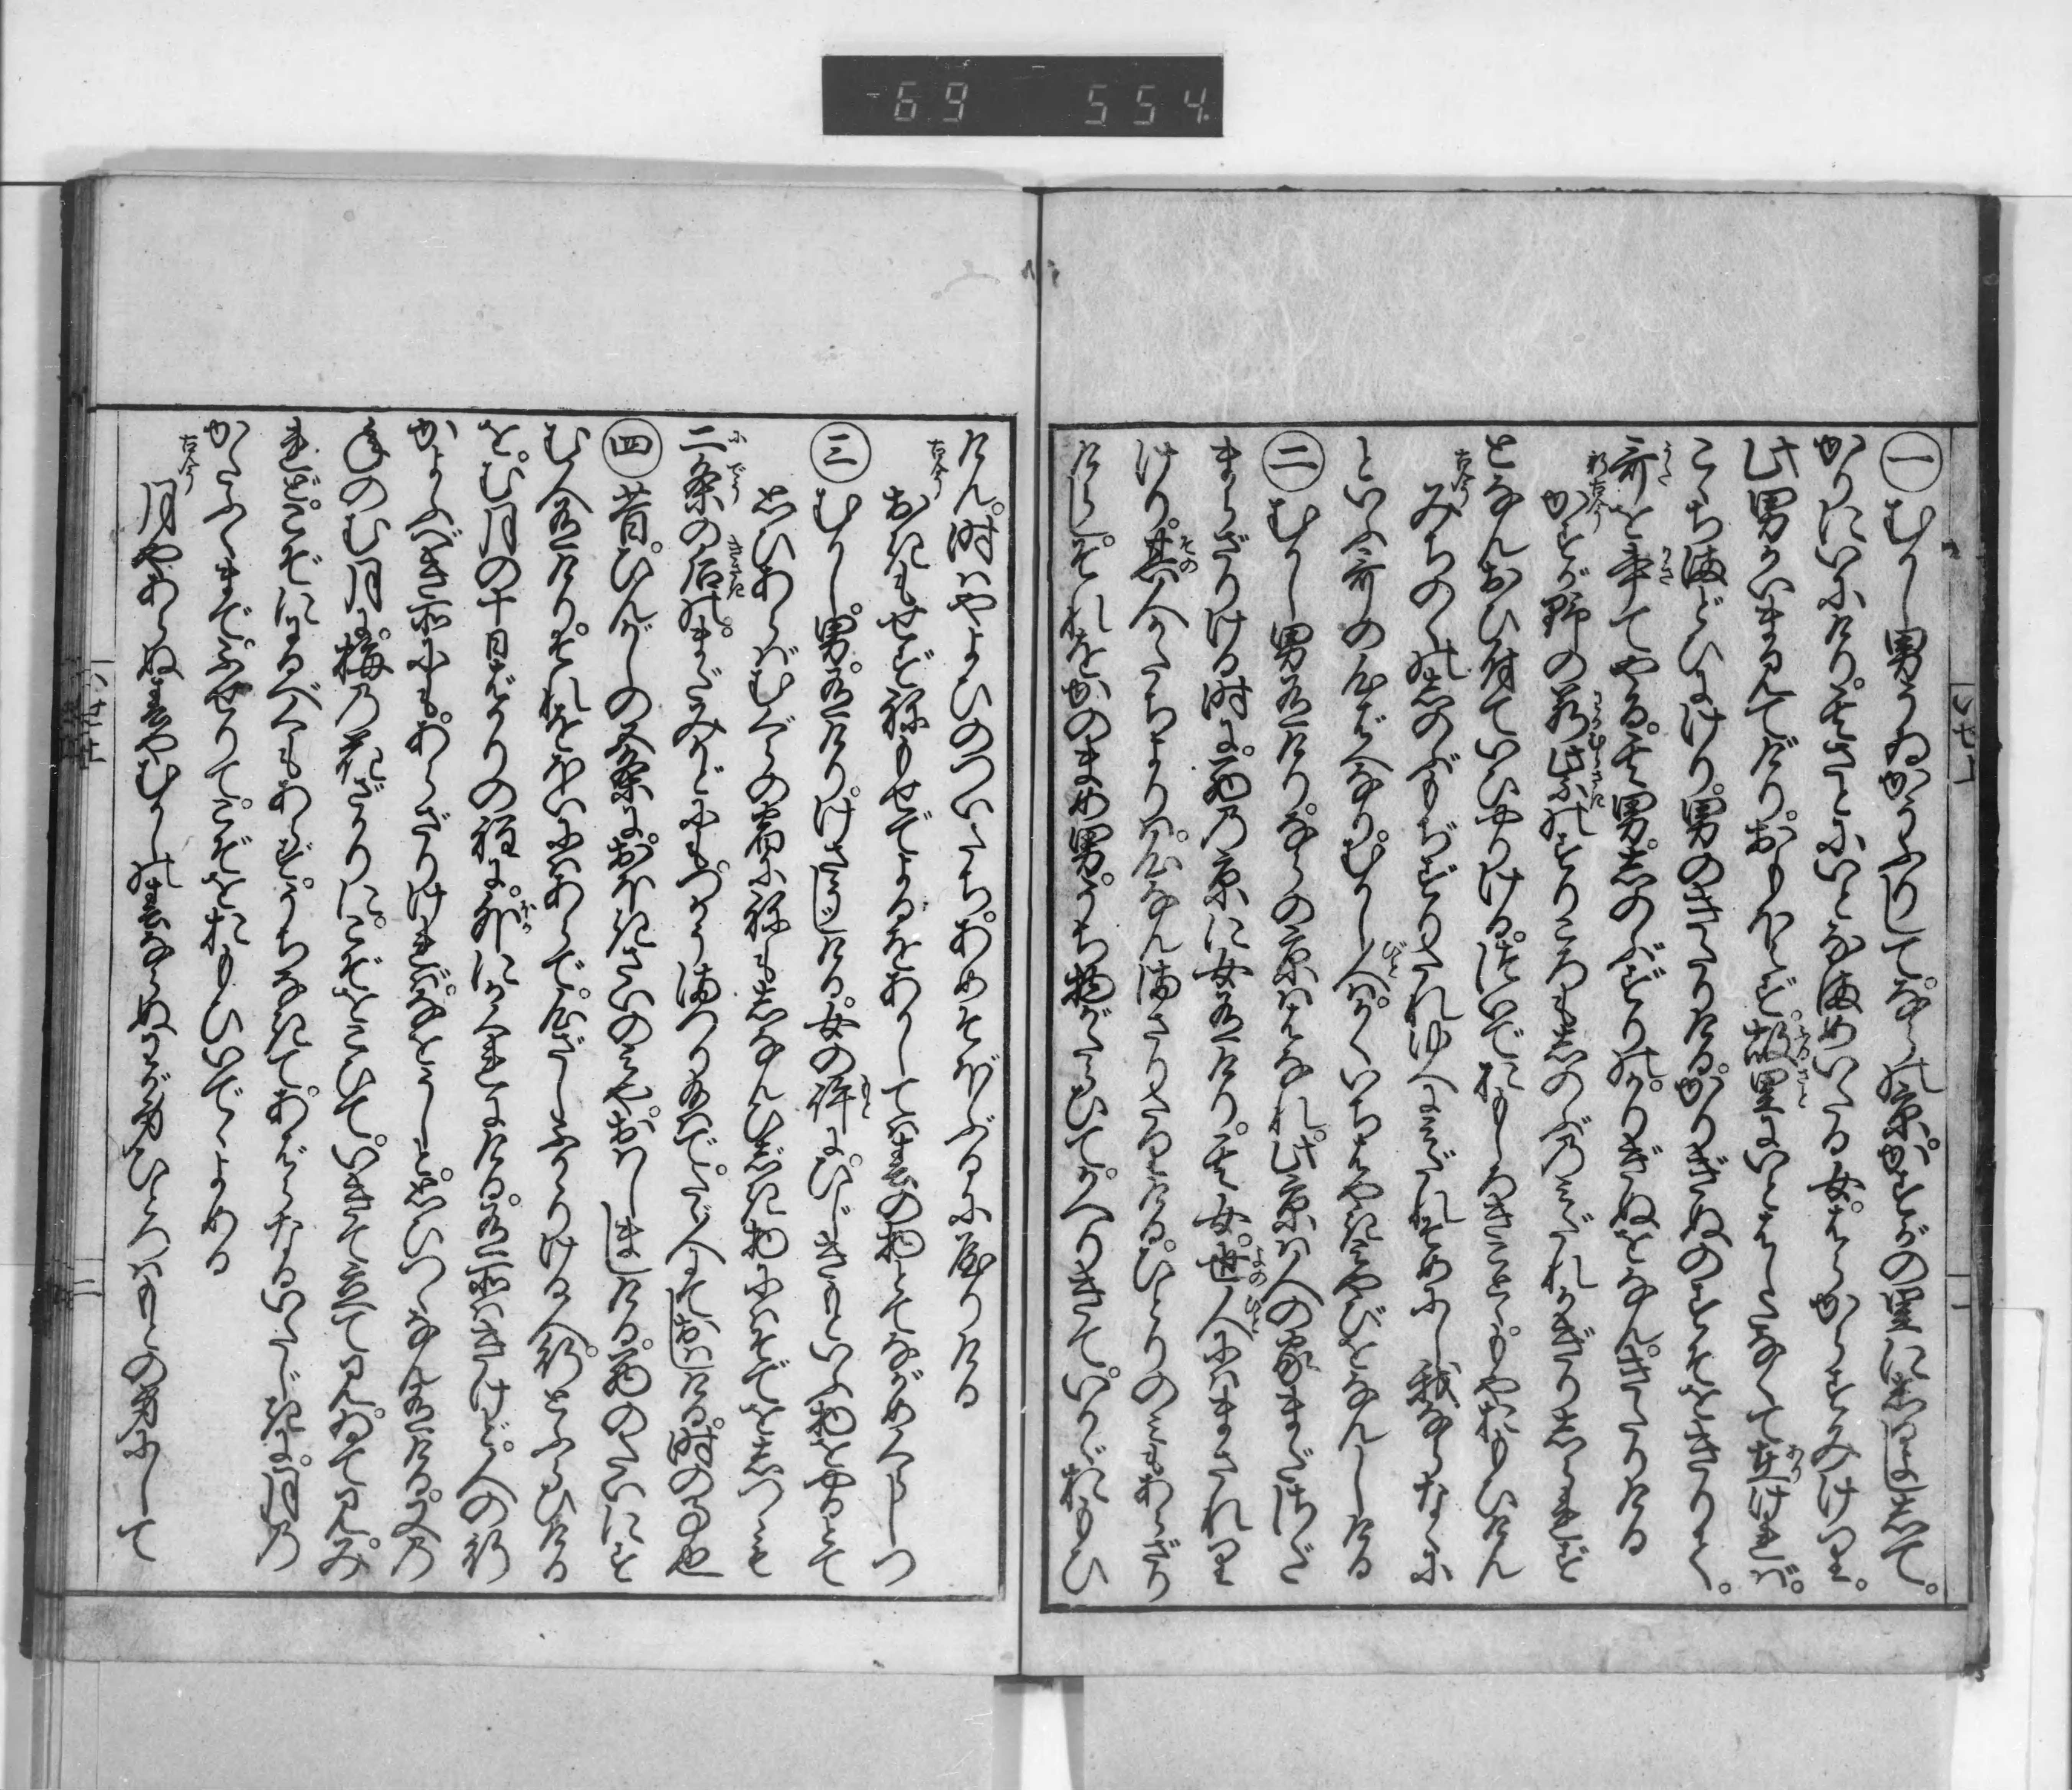 69 554.
一 むかし男うゐかうふりして。ならの京。かすがの里にしるよしゝて。
かりにいにけり。そのさとにいとなまめいたる女。はらからすみけり。
此男かいまみてけり。おもほえず。故里にいとはしたなくて在ければ。
こゝちまどひにけり。男のきたりける。かりぎぬのすそをきりて。
哥を書てやる。其男しのぶずりの。かりぎぬをなん。きたりける
新古今 かすが野の若紫のすり衣しのぶのみだれかぎりしられず
となんおひ付ていひやりける。ついでおもしろきことゝもや思ひけん
古今 みちのくのしのぶもぢずりたれゆへにみだれそめにし我ならなくに
といふ哥の心ばへなり。むかし人は。かくいちはやきみやびをなんしける
二 むかし男有けり。ならの京ははなれ。此京は人の家まださだ
まらざりける時に。西の京に女有けり。其女。世人にはまされり
けり。其人かたちよりは。心なんまさりたりける。ひとりのみもあらざり
けらし。それをかのまめ男。うち物がたらひて。かへりきて。いかゞ思ひ
けん。時はやよひのついたち。あめそぼふるにやりける
古今 おきもせずねもせでよるをあかしては春の物とてながめくらしつ
三 むかし男有けり。けさうじける女の許に。ひじきもといふ物をやるとて
思ひあらばむぐらの宿にねもしなんひじき物にはそでをしつゝも
二条の后の。まだみかどにも。つかうまつり給はで。たゞ人にておはしける時の事也
四 昔。ひんがしの五条に。おほきさいのみや。おはしましける。西のたいにす
む人有けり。それをほいにはあらで。心ざしふかゝりける人。行とふらひける
を。む月の十日ばかりの程に。外にかくれにける。有所はきけど。人の行
かよふべき所にも。あらざりければ。なをうしと。思ひつゝなん有ける。又の
年のむ月に。梅の花ざかりに。こぞをこひて。いきて立て見。ゐて見。み
れど。こぞににるべくもあらず。うちなきて。あばらなるいたじきに。月の
かたふくまで。ふせりて。こぞをおもひいでゝよめる
古今 月やあらぬ春やむかしの春ならぬ我身ひとつはもとの身にして